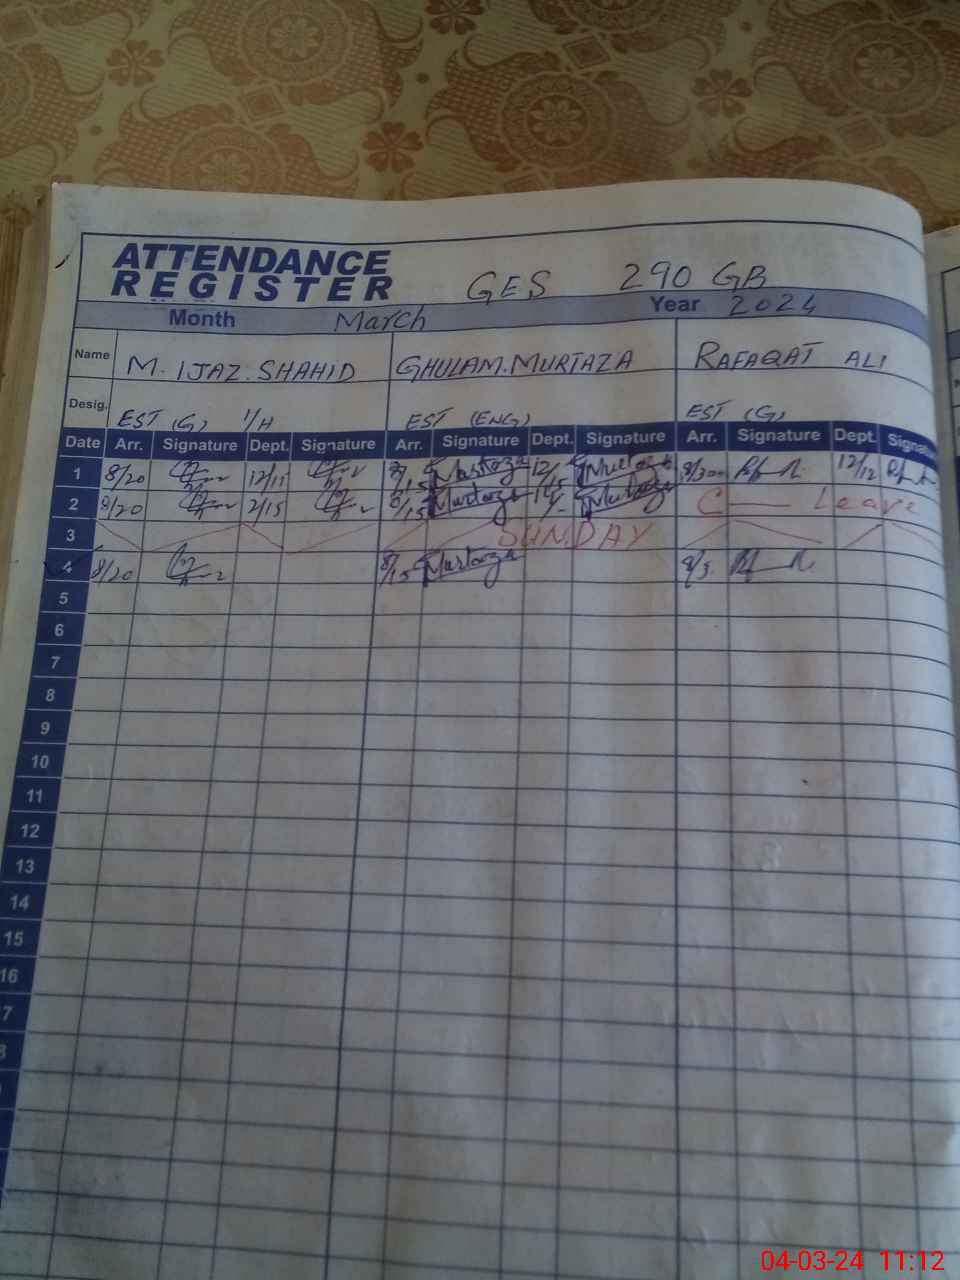 ATTENDANCE
REGISTER
GES 290 GB
Month March Year 2024
Name M. IJAZ. SHAHID GHULAM. MURTAZA RAFAQAT ALI
Desig. EST (G) 1/H EST (ENG) EST (G)
Date Arr. Signature Dept. Signature Arr. Signature Dept. Signature Arr. Signature Dept. Signatur
1 8/20 12/15 Murtaza 12/15 Murtaza 8/30 12/12
2 8/20 2/15 8/15 Murtaza Murtaza C Leave
3 SUNDAY
4 8/20 8/15 Murtaza
5
6
7
8
9
10
11
12
13
14
15
16
7
04-03-24 11:12